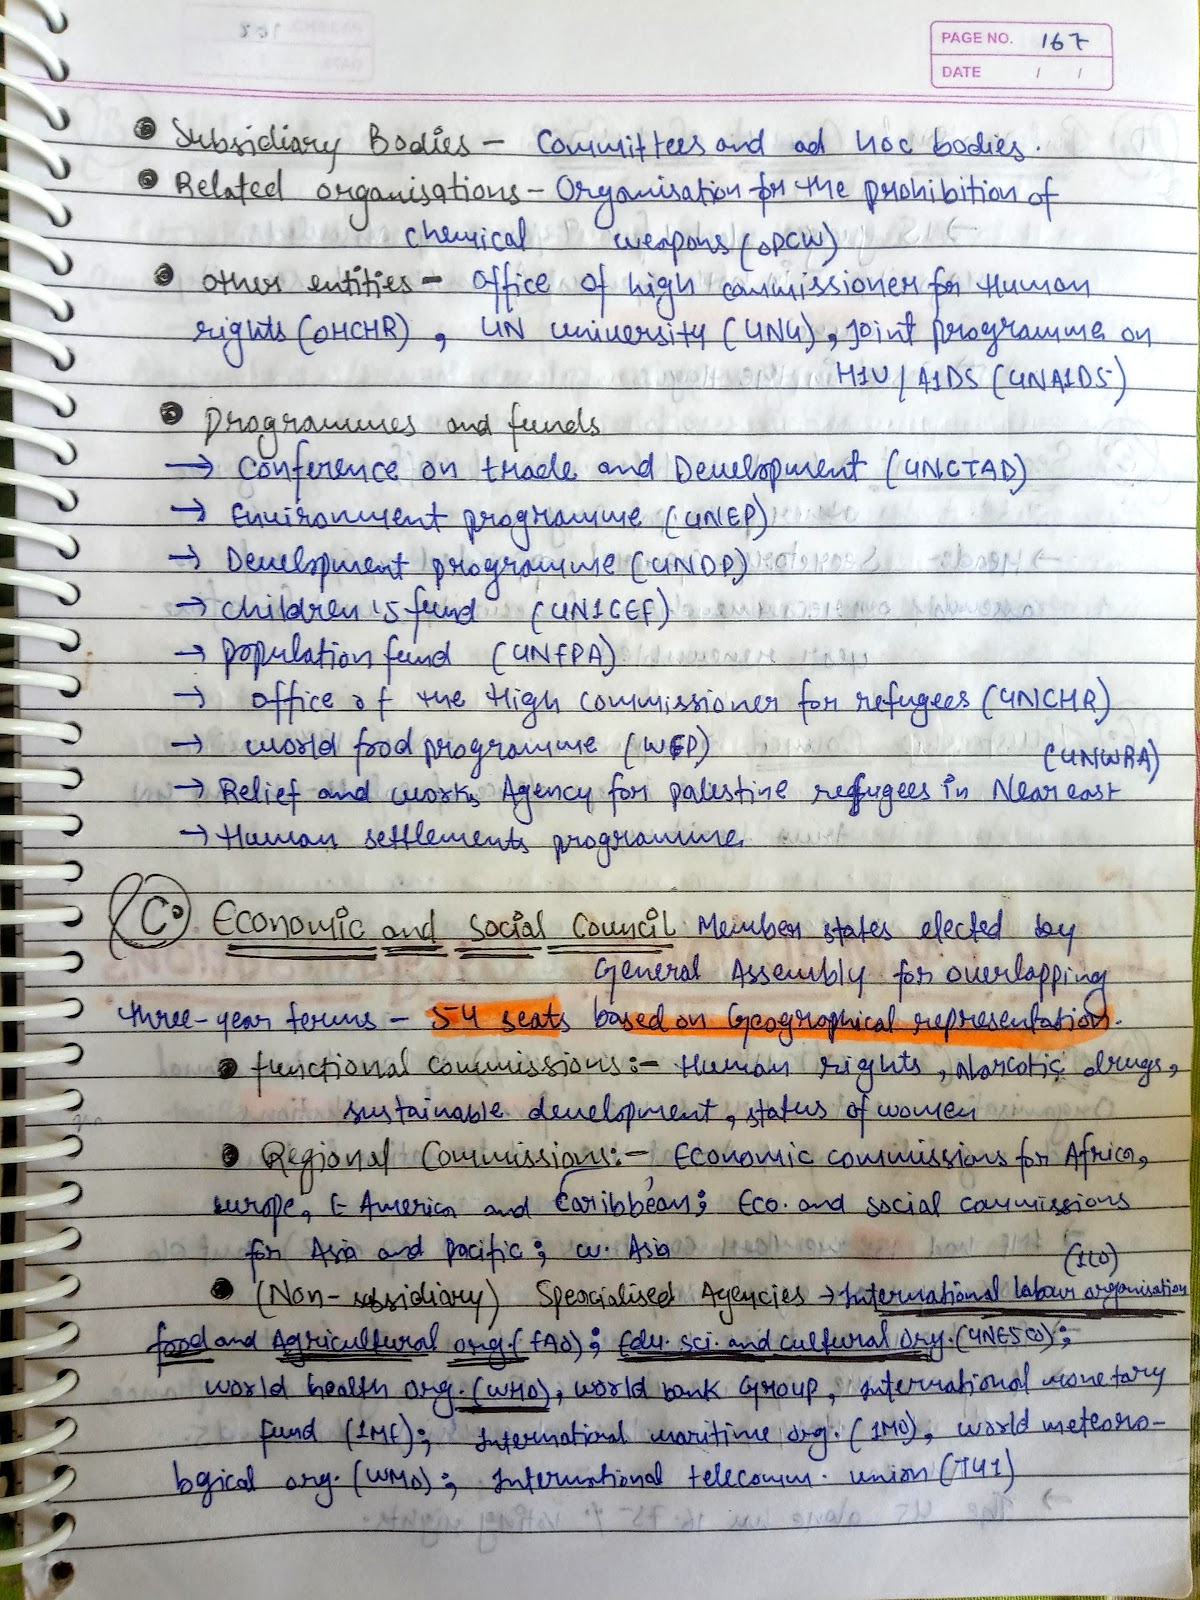 PAGE NO. 167
DATE / /
• Subsidiary Bodies – Committees and ad hoc bodies.
• Related organisations – Organisation for the prohibition of
chemical weapons (OPCW)
• Other entities – Office of high commissioner for Human
rights (OHCHR), UN University (UNU), Joint programme on
HIV/AIDS (UNAIDS)
• Programmes and funds
→ Conference on trade and Development (UNCTAD)
→ Environment programme (UNEP)
→ Development programme (UNDP)
→ Children's fund (UNICEF)
→ Population fund (UNFPA)
→ Office of the High Commissioner for refugees (UNCHR)
→ World food programme (WFP)
(UNWRA)
→ Relief and works Agency for palestine refugees in Near east
→ Human settlements programme.
C. Economic and Social Council Member states elected by
General Assembly for overlapping
three-year terms – 54 seats based on Geographical representation.
• functional commissions:– Human rights, Narcotic drugs,
sustainable development, status of women
• Regional Commissions:– Economic commissions for Africa,
Europe, L America and Caribbean; Eco. and social commissions
for Asia and pacific; w. Asia
(ILO)
• (Non-subsidiary) Specialised Agencies → International labour organisation
food and Agricultural org. (FAO); Edu. sci. and cultural org. (UNESCO);
World health org. (WHO), world bank Group, International monetary
fund (IMF); International maritime org. (IMO), world meteoro-
logical org. (WMO); International telecomm. union (ITU)